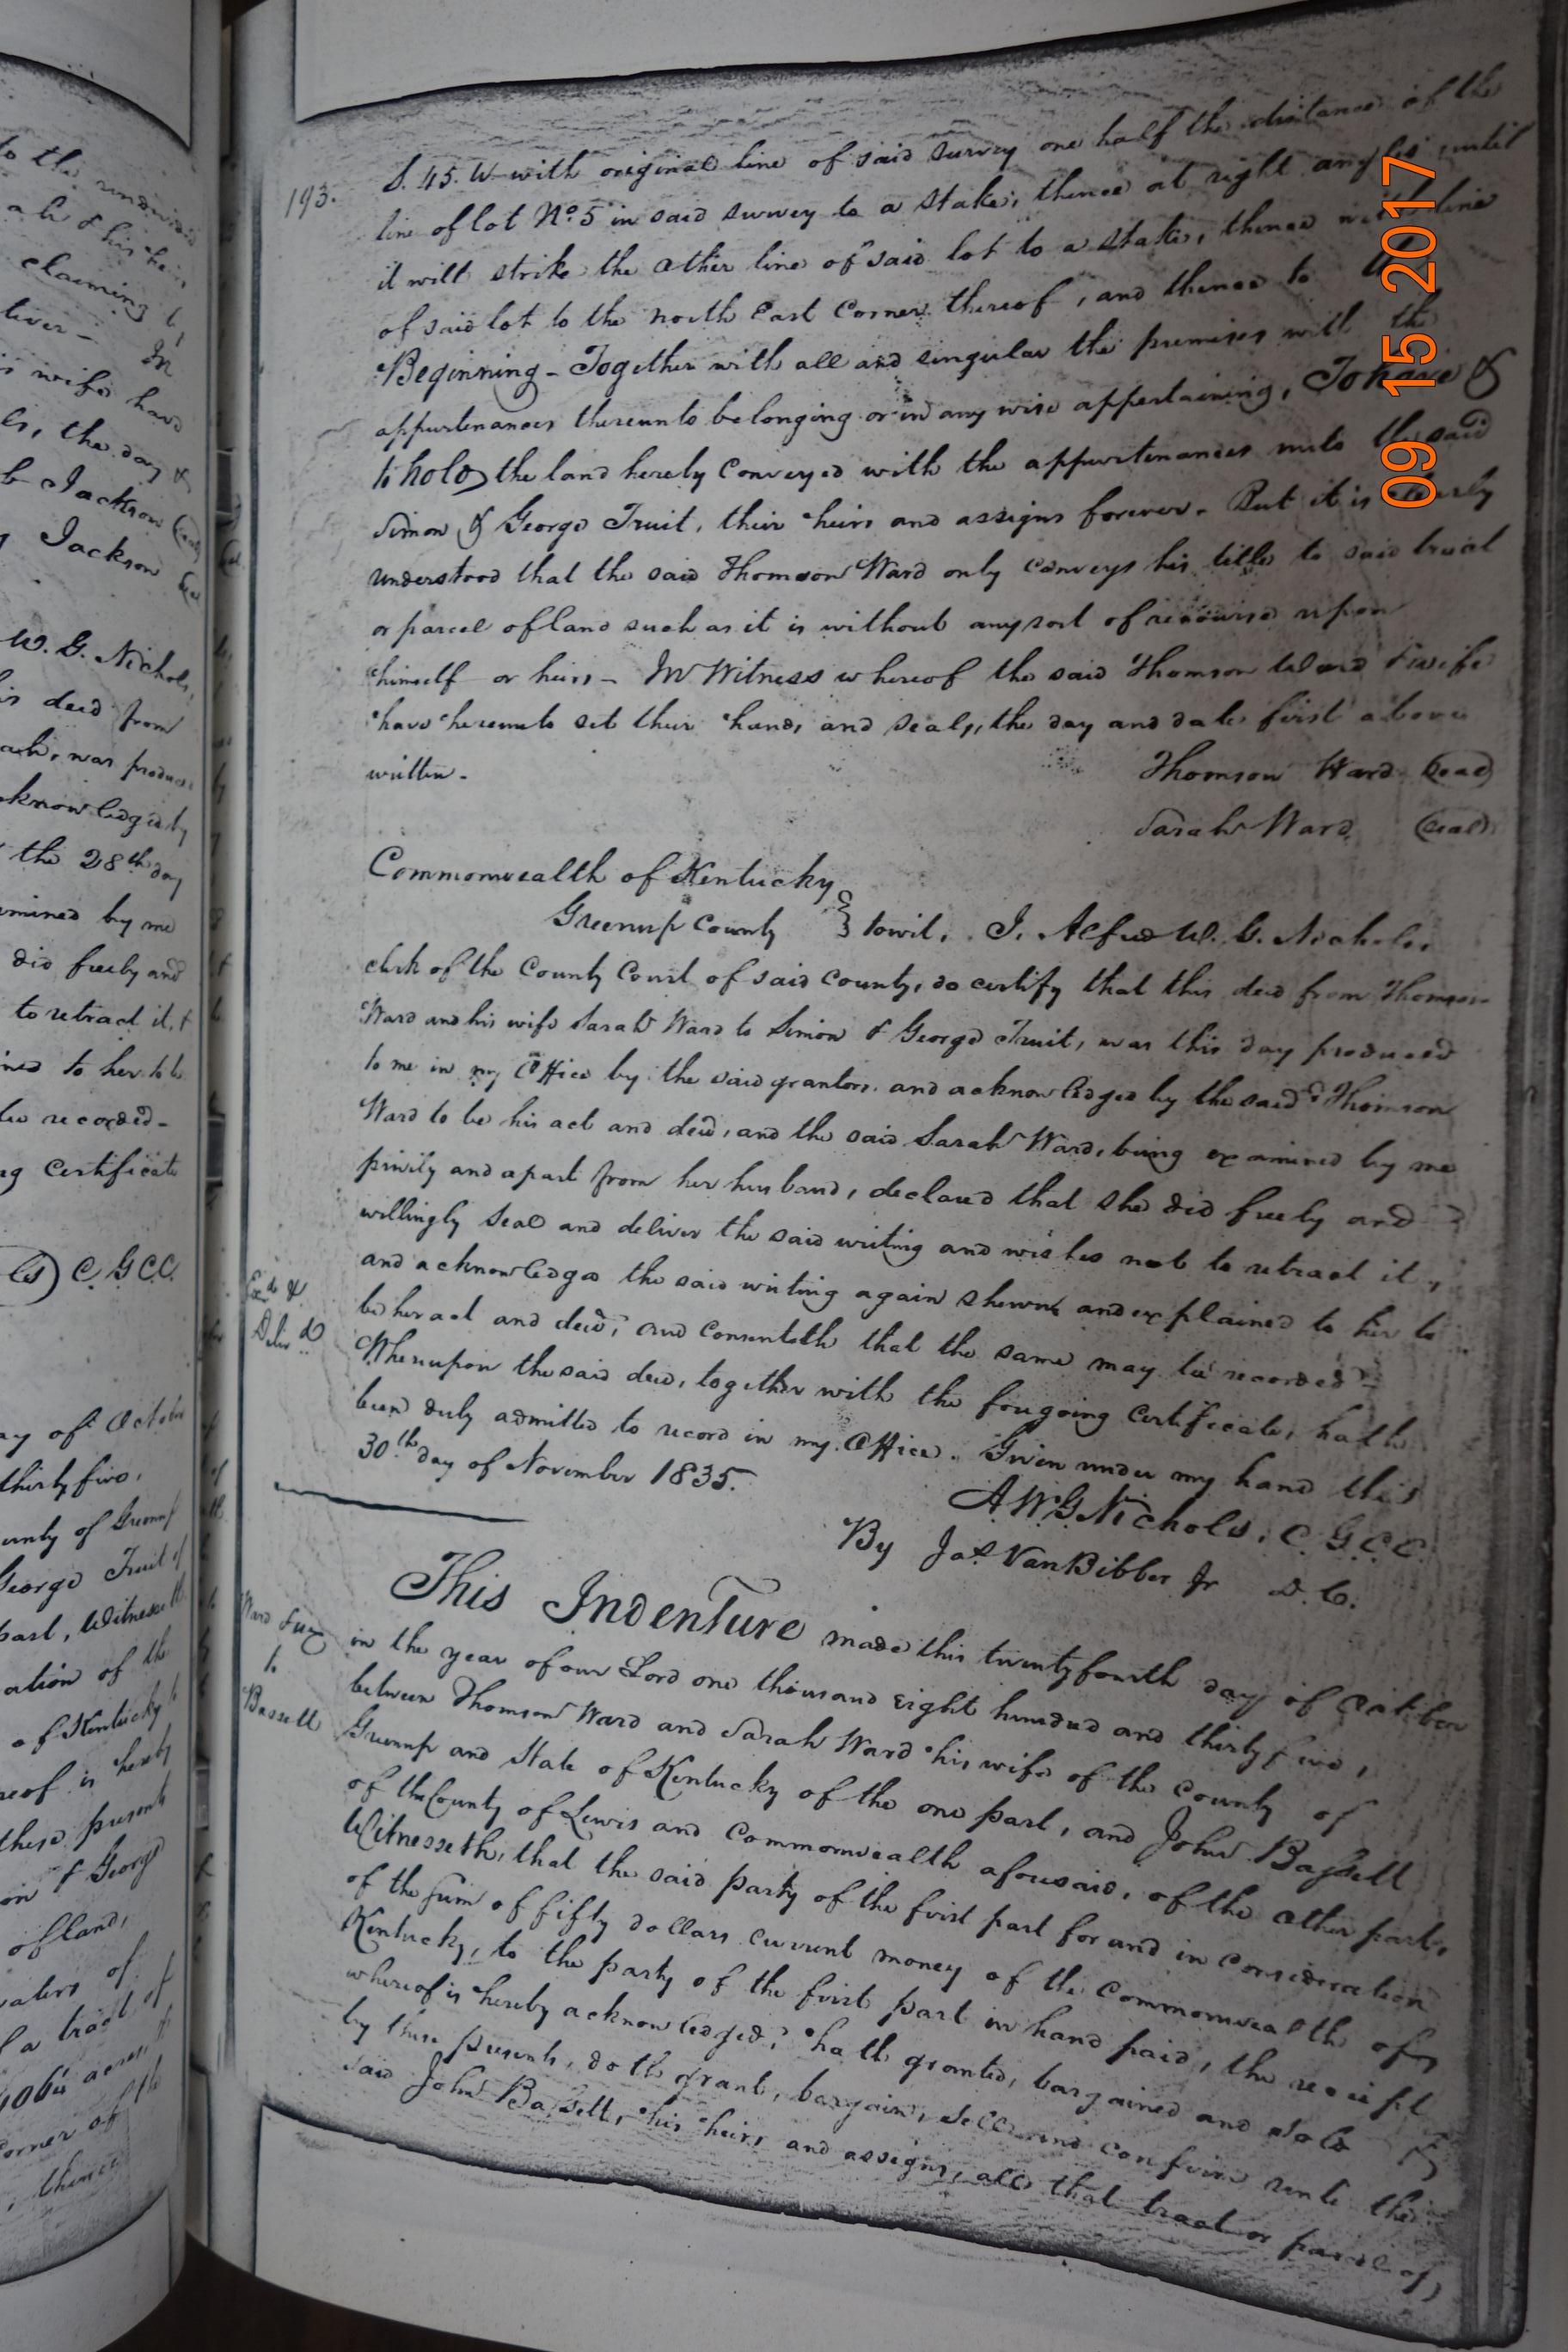 193.
S. 45. W with original line of said survey one half the distance of the
line of lot No. 5 in said survey to a stake, thence at right angles until
it will strike the other line of said lot to a stake, thence with line
of said lot to the north East Corner thereof, and thence to the
Beginning - Together with all and singular the premises with the
appurtenances thereunto belonging or in any wise appertaining, To have &
to hold the land hereby conveyed with the appurtenances unto the said
Simon & George Truit, their heirs and assigns forever. But it is clearly
understood that the said Thomson Ward only conveys his title to said tract
or parcel of land such as it is without any sort of recourse upon
himself or heirs - In Witness whereof the said Thomson Ward & wife
have hereunto set their hands and seals, the day and date first above
written -
Thomson Ward (seal)
Sarah Ward (seal)
Commonwealth of Kentucky
Greenup County } towit, I, Alfred W. G. Nichols,
clerk of the County Court of said County, do certify that this deed from Thomson
Ward and his wife Sarah Ward to Simon & George Truit, was this day produced
to me in my Office by the said grantors and acknowledged by the said Thomson
Ward to be his act and deed, and the said Sarah Ward, being examined by me
privily and apart from her husband, declared that she did freely and
willingly seal and deliver the said writing and wishes not to retract it,
and acknowledges the said writing again shewn and explained to her to
be her act and deed, and consenteth that the same may be recorded -
Whereupon the said deed, together with the foregoing Certificate, hath
been duly admitted to record in my Office. Given under my hand this
30th day of November 1835.
A W G Nichols, C. G. C. C.
By Jas. VanBibber Jr D. C.
Exd. &
Delivd
Ward & ux
to
Bassett
This Indenture made this twenty fourth day of October
in the year of our Lord one thousand Eight hundred and thirty five,
between Thomson Ward and Sarah Ward his wife of the County of
Greenup and State of Kentucky of the one part, and John Bassett
of the County of Lewis and Commonwealth aforesaid, of the other part,
Witnesseth, that the said party of the first part for and in consideration
of the sum of fifty dollars current money of the Commonwealth of
Kentucky, to the party of the first part in hand paid, the receipt
whereof is hereby acknowledged, hath granted, bargained and sold &
by these presents, doth grant, bargain, sell and confirm unto the
said John Bassett, his heirs and assigns, all that tract or parcel of
09 15 2017
W. G. Nichols,
is deed from
the 28th day
mined by me
did freely and
to retract it, &
ned to her to be
be recorded -
ng Certificate
C. G. C. C.
ay of October
thirty five,
unty of Greenup
George Truit of
part, Witnesseth
ation of the
of Kentucky
reof is hereby
these presents
on & George
of land,
waters of
f a tract of
acres,
Corner of the
, thence